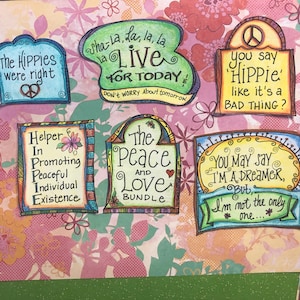 The HiPPiES
were right
Sha-la, la, la, la,
la
LiVE
FOR TODAY
DON'T WORRY About tomorrow
you say
'HiPPiE'
like it's a
BAD THING?
Helper
In
Promoting
Peaceful
Individual
Existence.
The
PEACE
AND
LOVE
BUNDLE
YOU MAY SAY
I'M A DREAMER,
But...
I'm not the only
one...